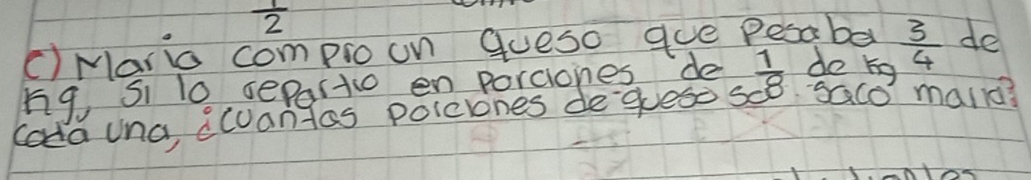 1/2
c) Maria compro un queso que pesaba 3/4 de
kg, si lo repartio en porciones de 1/8 de kg
cada una, ¿cuantas porciones de queso saco maria?